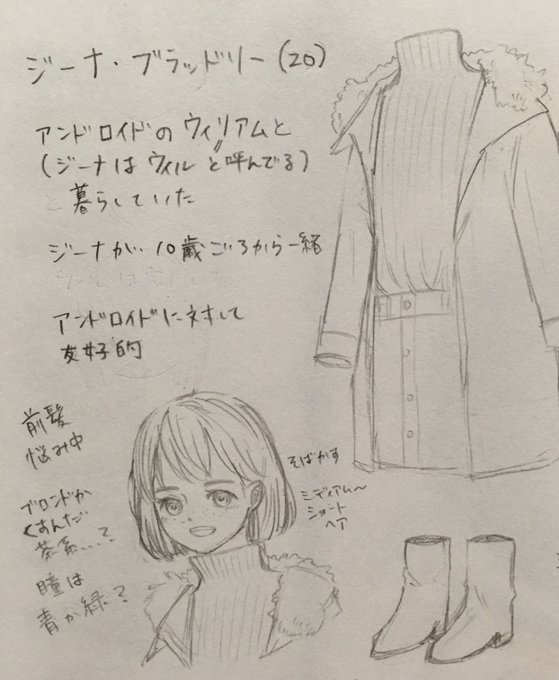 ジーナ・ブラッドリー(20)
アンドロイドのウィリアムと
(ジーナはウィルと呼んでる)
暮らしていた
ジーナが10歳ごろから一緒
アンドロイドに対して
友好的
前髪
悩み中
そばかす
ミディアム〜
ショート
ヘア
ブロンドか
くすんだ
茶系…?
瞳は
青か緑?